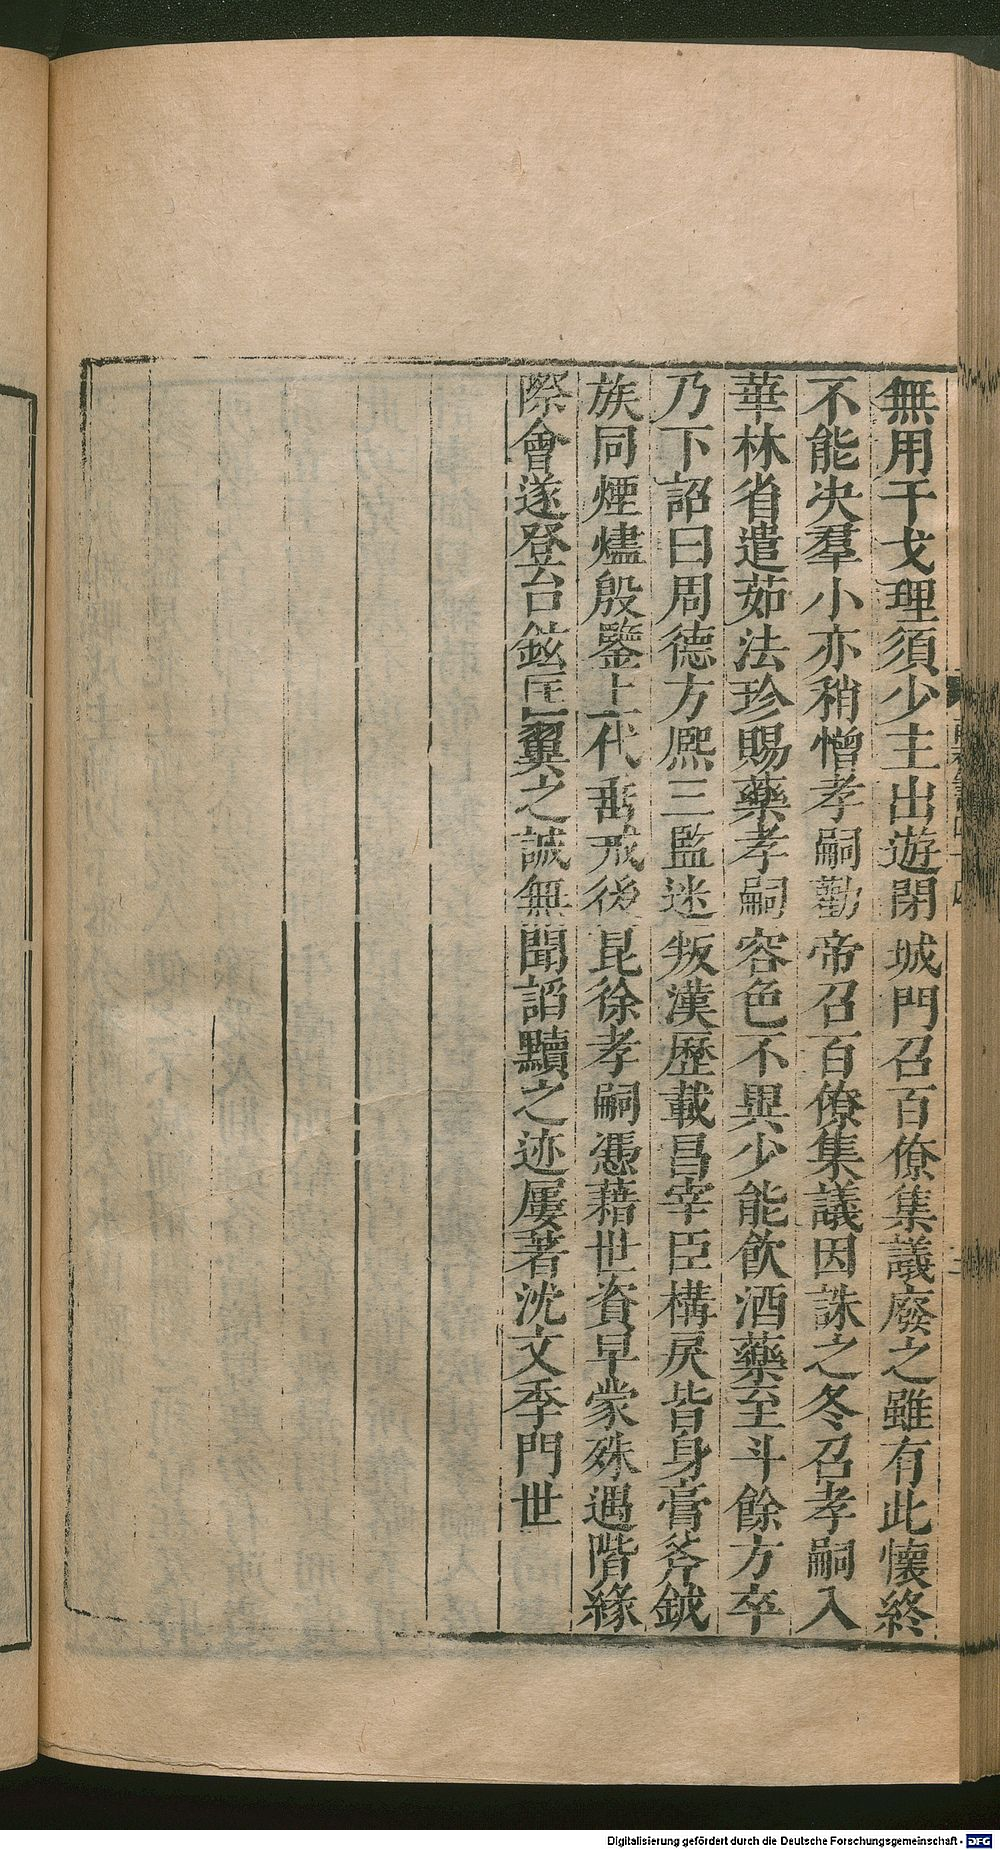 無用干戈理須少主出遊閉城門召百僚集議廢之雖有此懷終
不能決羣小亦稍憎孝嗣勸帝召百僚集議因誅之冬召孝嗣入
華林省遣茹法珍賜藥孝嗣容色不異少能飲酒藥至斗餘方卒
乃下詔曰周德方熙三監迷叛漢歷載昌宰臣構戾皆身膏斧鉞
族同煙燼殷鑒上代垂戒後昆徐孝嗣憑藉世資早蒙殊遇階緣
際會遂登台鉉匡翼之誠無聞諂黷之迹屢著沈文季門世
Digitalisierung gefördert durch die Deutsche Forschungsgemeinschaft - DFG